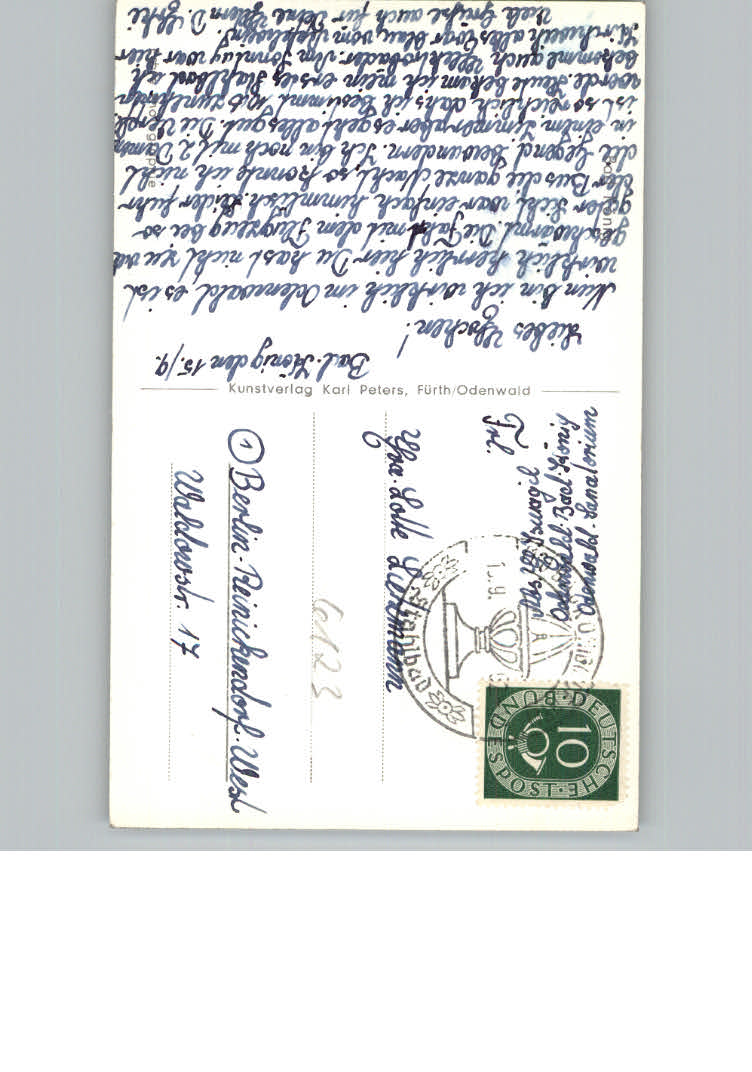 Bad-König den 15./9.
Liebes Lottchen!
Nun bin ich wirklich im Odenwald, es ist
wirklich herrlich hier Du hast nicht zu viel
geschwärmt. Die Fahrt mit dem Flugzeug bei so
guter Sicht war einfach himmlisch. Leider fuhr
der Bus die ganze Nacht, so konnte ich nicht
die Gegend bewundern. Ich bin noch mit 2 Damen
in einem Zimmer, aber es geht alles gut. Die Verpfl.
ist so reichlich, dass ich bestimmt zunehmen
werde. Heute bekam ich mein erstes Stahlbad, ich
bekomme auch Am Sonntag war hier
Kirchweih alles war blau vom
Viele Grüße auch für Deine Eltern D.
Kunstverlag Karl Peters, Fürth/Odenwald
Abs.
Odenwald-Bad-König
Odenwald-Sanatorium
Frl.
Lotte
(1) Berlin-Reinickendorf-West
Waldowstr. 17
6123
Stahlbad
DEUTSCHE BUNDESPOST
10